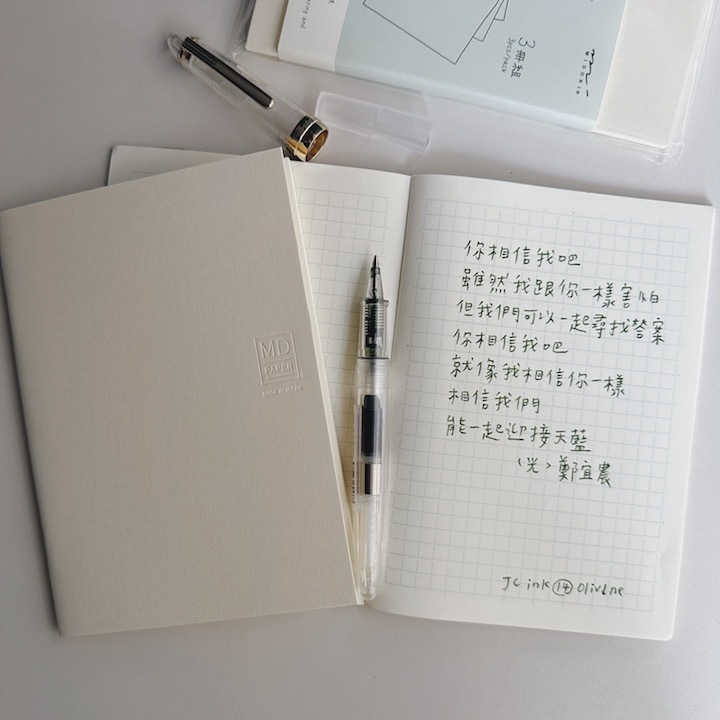 3冊組
3pcs/pack
MIDORI
MD
PAPER
MADE IN JAPAN
你相信我吧
雖然我跟你一樣害怕
但我們可以一起尋找答案
你相信我吧
就像我相信你一樣
相信我們
能一起迎接天藍
〈光〉鄭宜農
JC ink ⑭ Olivine